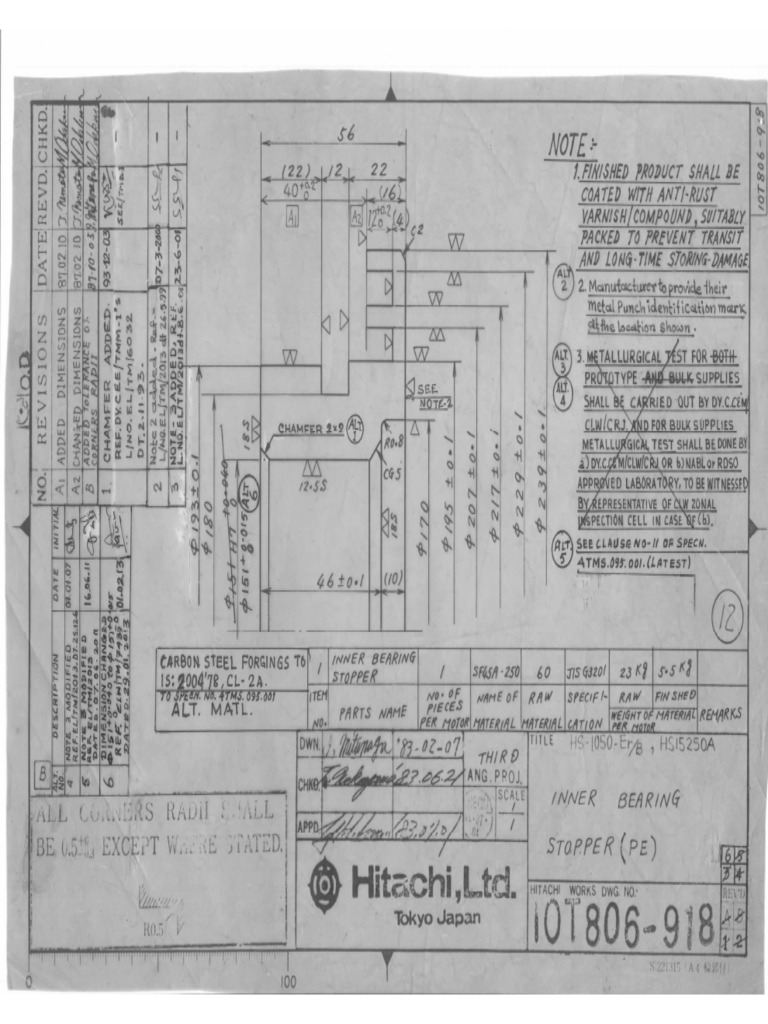 IOT806-9-8
NOTE:-
1. FINISHED PRODUCT SHALL BE
COATED WITH ANTI-RUST
VARNISH/COMPOUND, SUITABLY
PACKED TO PREVENT TRANSIT
AND LONG-TIME STORING-DAMAGE
ALT 2
2. Manufacturer to provide their
metal Punch identification mark
at the location shown.
ALT 3
ALT 4
3. METALLURGICAL TEST FOR BOTH
PROTOTYPE AND BULK SUPPLIES
SHALL BE CARRIED OUT BY DY.C.CEM
CLW/CRJ. AND FOR BULK SUPPLIES
METALLURGICAL TEST SHALL BE DONE BY
a) DY.CCEM/CLW/CRJ OR b) NABL OR RDSO
APPROVED LABORATORY, TO BE WITNESSED
BY REPRESENTATIVE OF CLW ZONAL
INSPECTION CELL IN CASE OF (b).
ALT. 5
SEE CLAUSE NO-11 OF SPECN.
4TMS.095.001.(LATEST)
12
56
(22) 12 22
40 +0.2 0
(16)
A1
A2
12 +0.2 0
(4)
C2
SEE
NOTE-2
CHAMFER 2x2
ALT 1
18-S
R0.8
CG5
12.5S
18S
46±0.1
(10)
φ193±0.1
φ180
φ151 H7 +0.040 0
φ151 +0.015 0
ALT 6
φ170
φ195±0.1
φ207±0.1
φ217±0.1
φ229±0.1
φ239±0.1
NO. REVISIONS DATE REVD. CHKD.
A1 ADDED DIMENSIONS 87.02.10
A2 CHANGED DIMENSIONS 87.02.10
B ADDED TOLERANCE OF
CORNERS RADII
87-10-05
1. CHAMFER ADDED.
REF. DY.CEE/TMM-1's
L/NO.EL/TM/6032
DT. 2-11-93.
93-12-03
2 Note 2 added. Ref.-
L/NO.EL/TM/2013 dt 26.5.99
07-3-2000
3 NOTE 3 ADDED, REF.
23-6-01
ALT. NO. DESCRIPTION DATE INITIAL
4 NOTE 3 MODIFIED
01.01.07
5 NOTE 3 MODIFIED
16.06.11
6 DIMENSION CHANGED
DATED:29.01.2013
01.02.13
B
CARBON STEEL FORGINGS TO
IS: 2004'78, CL-2A.
TO SPECN. NO. 4TMS.095.001
ALT. MATL.
1 INNER BEARING STOPPER 1 SF45A-250 60 JIS G3201 23 Kg 5.5 Kg
ITEM NO. PARTS NAME NO. OF PIECES PER MOTOR NAME OF MATERIAL RAW MATERIAL SPECIFICATION RAW FINISHED WEIGHT OF MATERIAL PER MOTOR REMARKS
DWN. '83-02-07
CHKD. '83.06.21
APPD. '83.07.01
THIRD
ANG. PROJ.
SCALE
1
1
TITLE HS-1050-Er/B, HS15250A
INNER BEARING
STOPPER (PE)
ALL CORNERS RADII SHALL
BE 0.5 EXCEPT WHERE STATED.
R0.5
Hitachi, Ltd.
Tokyo Japan
HITACHI WORKS DWG. NO.
IOT806-918
REV'D
6 5
3 4
A B
1 2
0
100